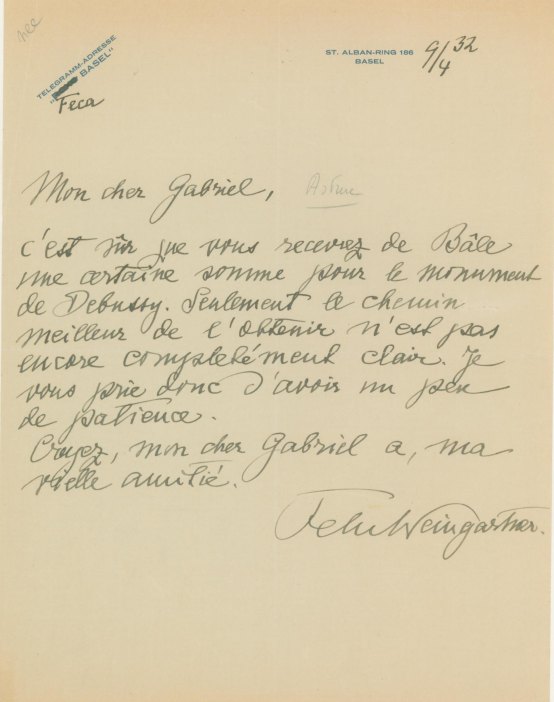 TELEGRAMM-ADRESSE
BASEL"
Feca
ST. ALBAN-RING 186
BASEL
9/4 32
Mon cher Gabriel,
Astruc
c'est sûr que vous recevrez de Bâle
une certaine somme pour le monument
de Debussy. Seulement le chemin
meilleur de l'obtenir n'est pas
encore complètément clair. Je
vous prie donc d'avoir un peu
de patience.
Croyez, mon cher Gabriel a, ma
vielle amitié.
Felix Weingartner.